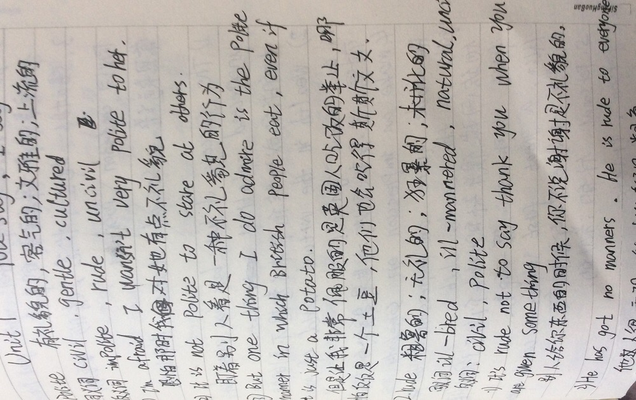 Unit 1
Polite 有礼貌的, 客气的; 文雅的; 上流的
civil, gentle, cultured
impolite, rude, uncivil
I'm afraid I wasn't very polite to her.
恐怕那时我对她有点不礼貌
It is not polite to stare at others.
盯着别人看是一种不礼貌的行为
But one thing I do admire is the polite
manner in which British people eat, even if
it is just a potato.
但是让我非常佩服的是英国人吃饭的举止, 哪
一个土豆, 他们也会吃得斯斯文文.
2. rude 粗鲁的; 无礼的; 狂暴的,
ill-bred, ill-mannered, natural,
civil, polite
1) It's rude not to say thank you when you
are given something
别人给你东西的时候, 你不说谢谢是不礼貌的.
2) He has got no manners. He is rude to everyone